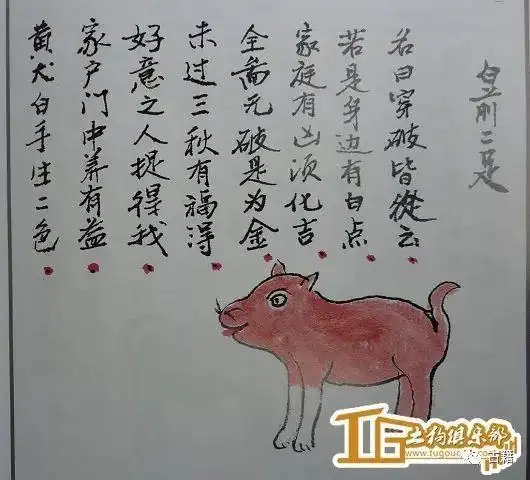 白前二足
黄犬白手生二色
家户门中养有益
好意之人捉得我
未过三秋有福得
全无破是为金
家庭有凶须化吉
若是身边有白点
名曰穿破皆從云
TG土狗俱乐部
古籍